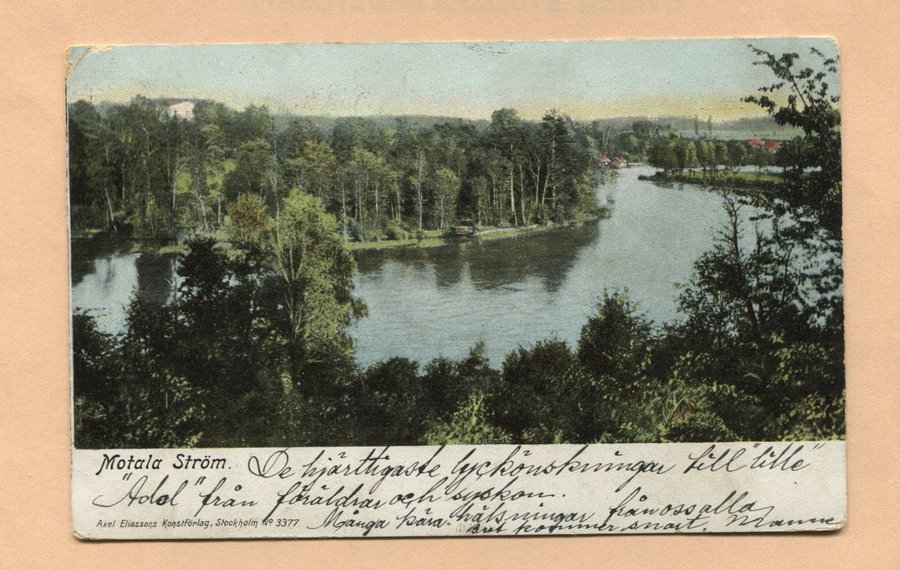 Motala Ström. De hjärtligaste lyckönskningar till "lille"
"Adel" från föräldrar och syskon.
Axel Eliassons Konstförlag, Stockholm Nº 3377
Många kära hälsningar från oss alla
kommer snart. Manne